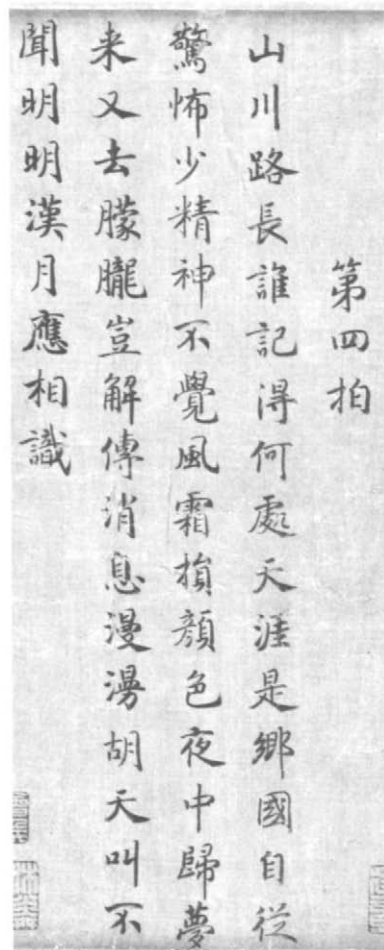 第四拍
山川路長誰記得何處天涯是鄉國自從
驚怖少精神不覺風霜損顏色夜中歸夢
来又去朦朧豈解傳消息漫漫胡天叫不
聞明明漢月應相識